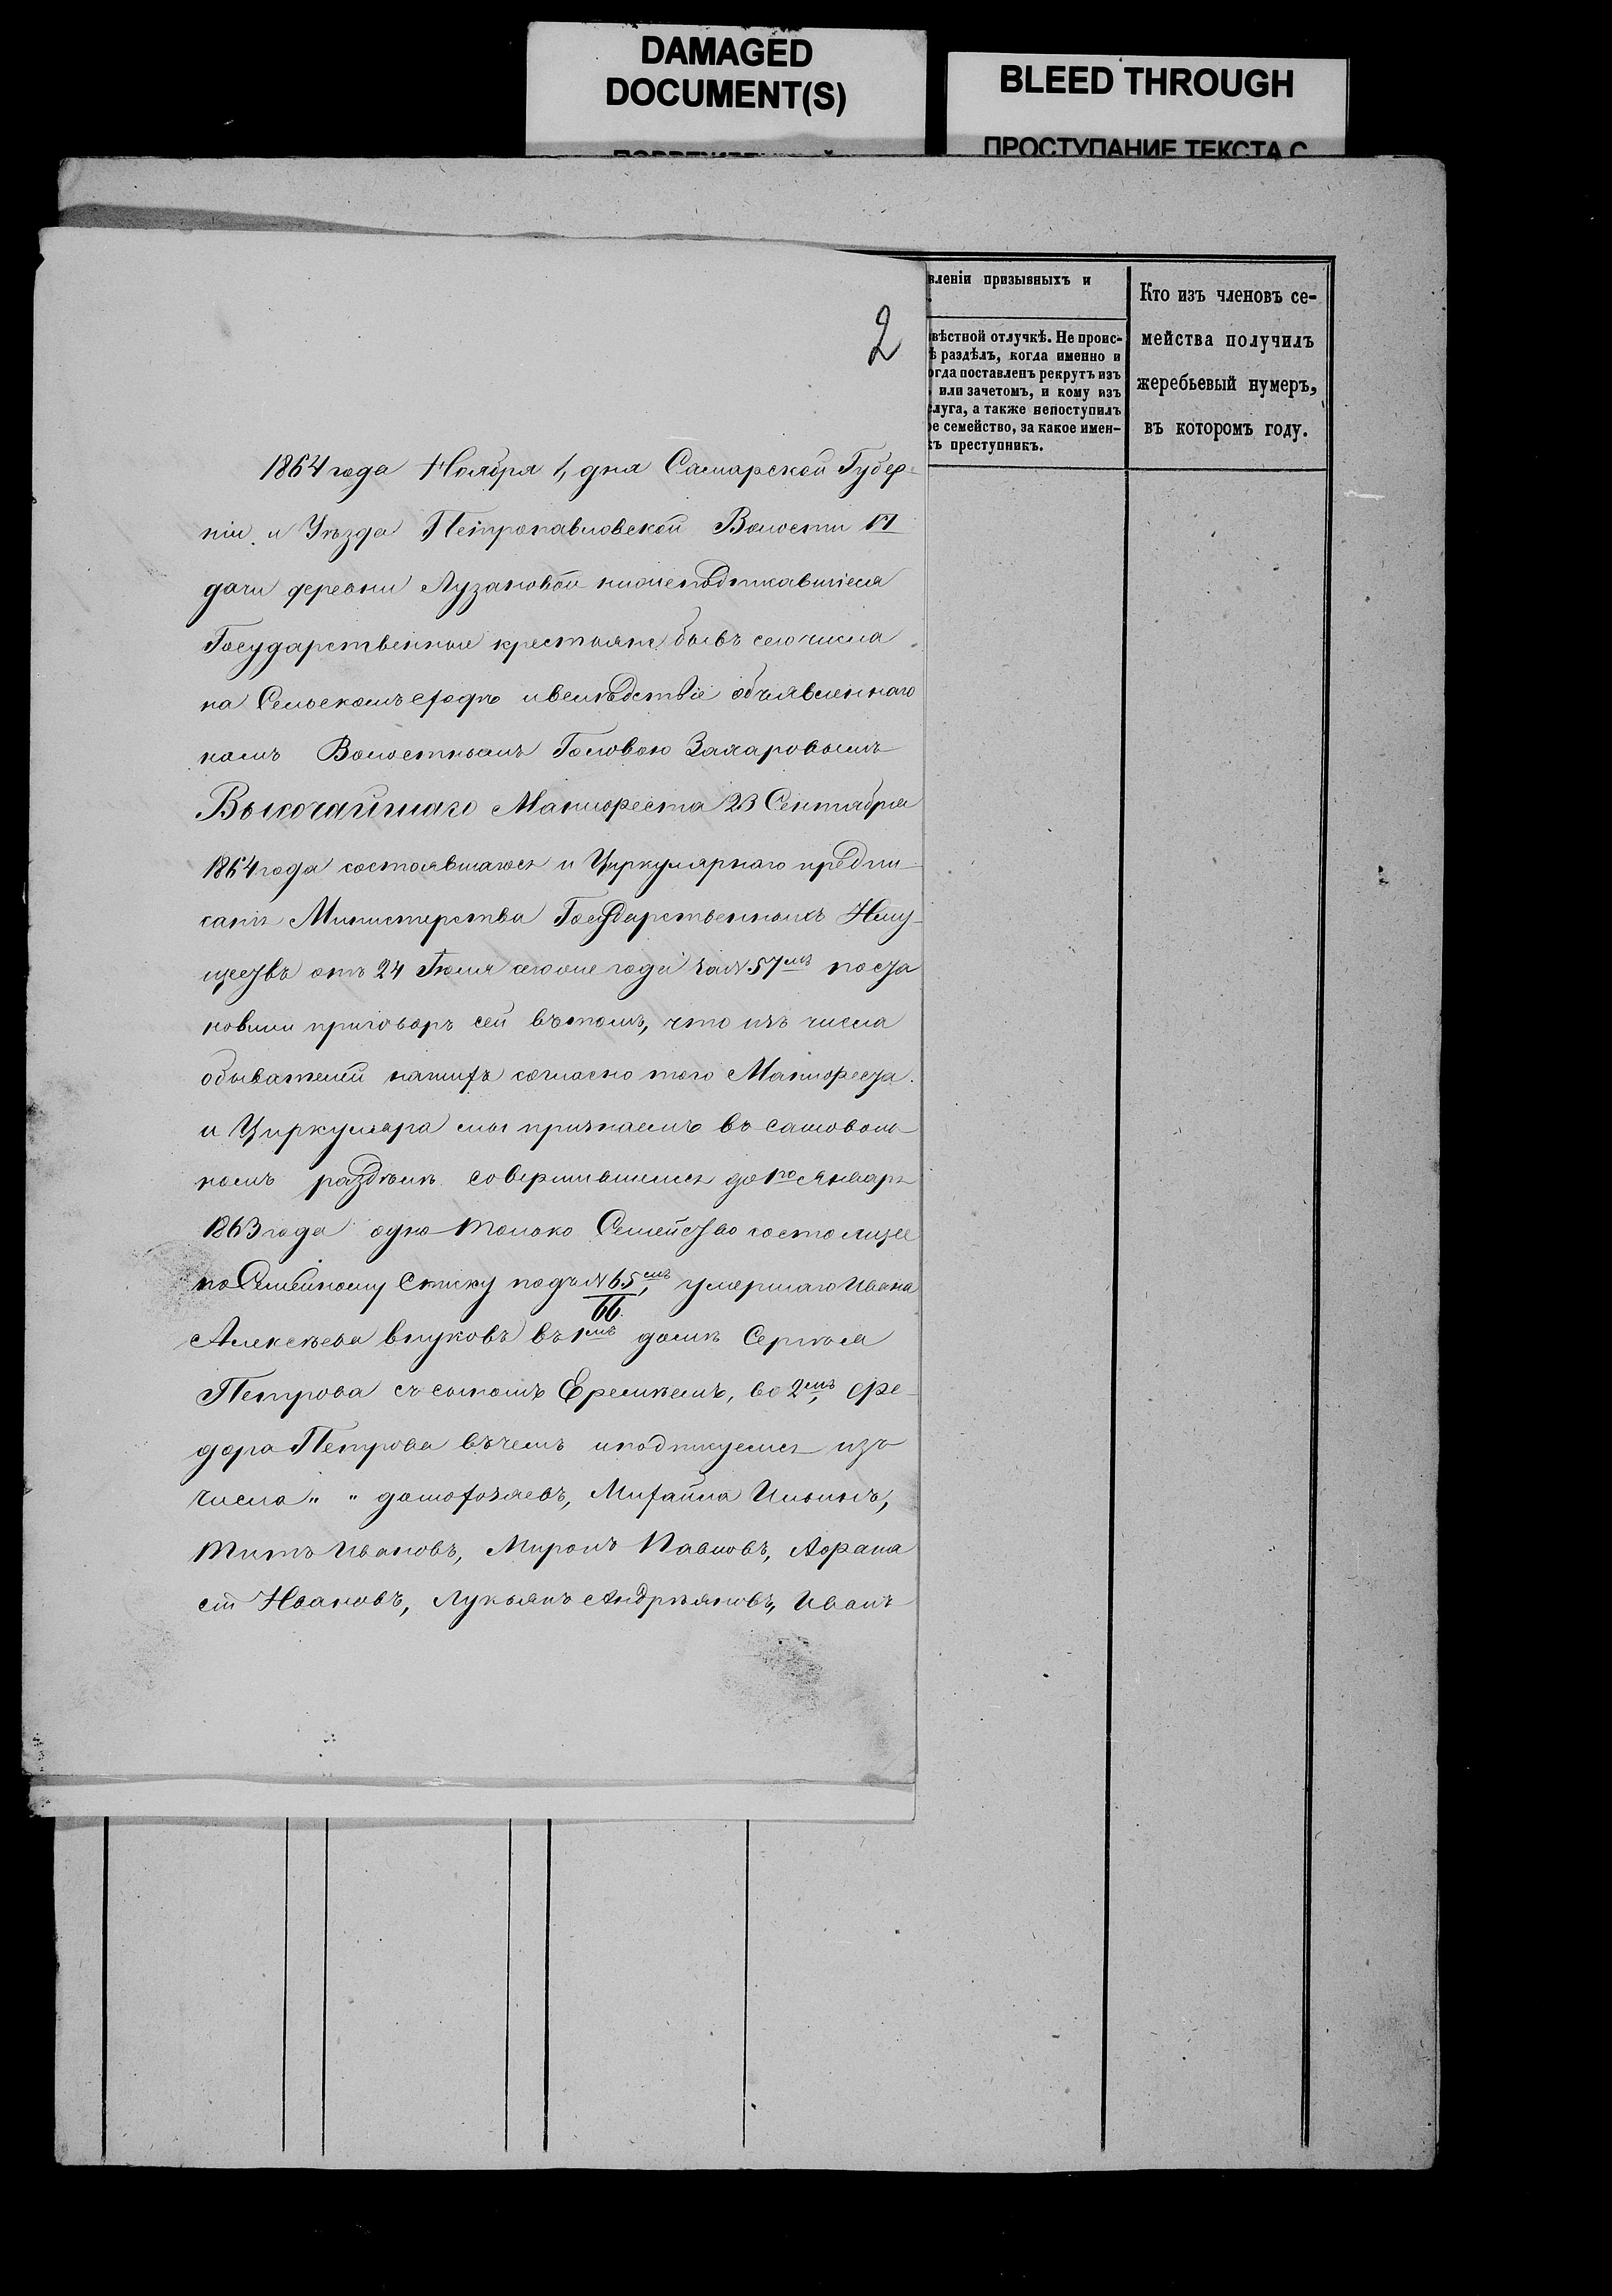 DAMAGED
DOCUMENT(S)
BLEED THROUGH
ПРОСТУПАНИЕ ТЕКСТА С
вленіи призывныхъ и
вѣстной отлучкѣ. Не проис-
ѣ раздѣлъ, когда именно и
огда поставленъ рекрутъ изъ
или зачетомъ, и кому изъ
слуга, а также непоступилъ
ое семейство, за какое имен-
къ преступникъ.
Кто изъ членовъ се-
мейства получилъ
жеребьевый нумеръ,
въ которомъ году.
2
1864 года Ноября 1, дня Самарской Губер-
ніи и Уѣзда Петропавловской Волости VI
дачи деревни Лузановой нижеподпкавшіеся
Государственные крестьяне бывъ сего числа
на Сельскомъ сходѣ ивслѣдствіе объявленнаго
намъ Волостнымъ Головою Захаровымъ
Высочайшаго Манифеста 23 Сентября
1864 года состоявшагося и Циркулярнаго предпи-
санія Министерства Государственныхъ Иму-
ществъ отъ 24 Іюля сегоже года за № 57мъ поста
новили приговоръ сей вътомъ, что изъ числа
обывателей нашихъ согласно того Манифеста
и Циркуляра мы признаемъ въ самоволь-
номъ раздѣлѣ совершившимся до 1го Января
1863 года одно только Семейство состоящее
по Семейному Списку подъ № 65мъ, умершаго Ивана
66
Алексѣева внуковъ въ 1мъ домѣ Сергѣя
Петрова съ сыномъ Еремѣемъ, во 2мъ, Фе-
дора Петрова въчемъ иподпкуемся изъ
числа " " домохозяевъ, Михайла Ильинъ,
Титъ Ивановъ, Миронъ Павловъ, Афана
сій Ивановъ, Лукьянъ Андрѣяновъ, Иванъ